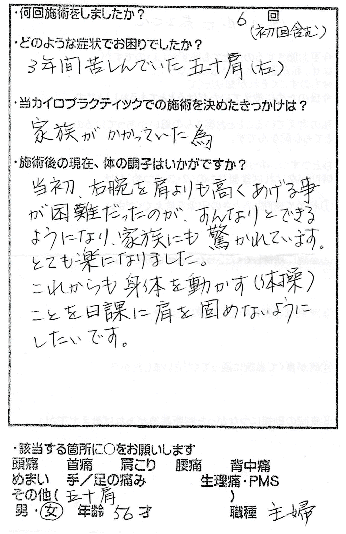 ・何回施術をしましたか?
6 回
(初回含む)
・どのような症状でお困りでしたか?
3年間苦しんでいた五十肩(右)
・当カイロプラクティックでの施術を決めたきっかけは?
家族がかかっていた為
・施術後の現在、体の調子はいかがですか?
当初、右腕を肩よりも高くあげる事
が困難だったのが、すんなりとできる
ようになり、家族にも驚かれています。
とても楽になりました。
これからも身体を動かす(体操)
ことを日課に肩を固めないように
したいです。
・該当する箇所に○をお願いします
頭痛 首痛 肩こり 腰痛 背中痛
めまい 手/足の痛み 生理痛・PMS
その他(五十肩 )
男・女 年齢 56才 職種 主婦